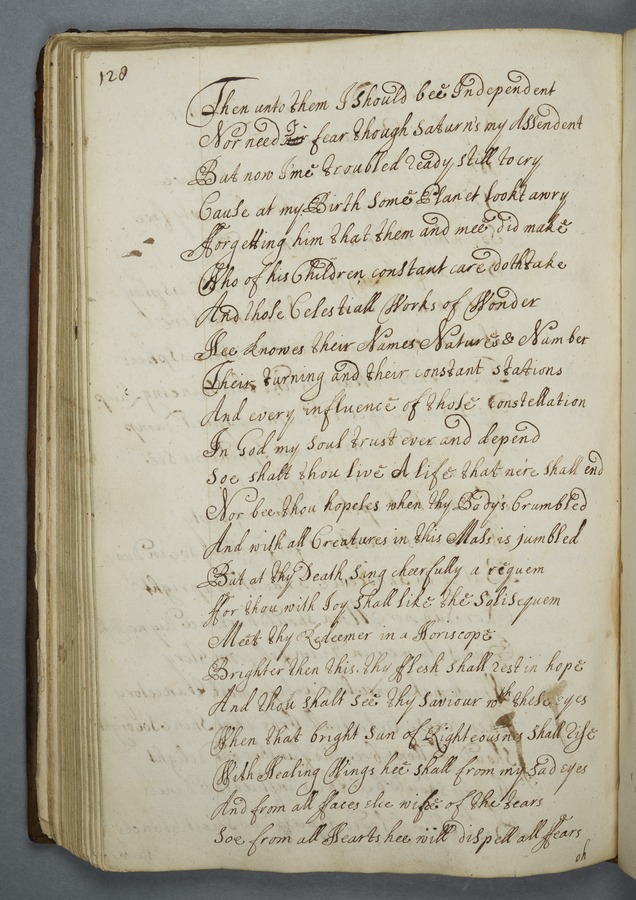 128
Then unto them I should bee Independent
Nor need I fear though Saturn's my Assendent
But now I'me troubled ready still to cry
Cause at my Birth some Planet look't awry
fforgetting him that them and mee did make
Who of his Children constant care doth take
And those Celestiall Works of Wonder
Hee knowes their Names Natures & Number
Their turning and their constant stations
And every influence of those Constellation
In God my soul trust ever and depend
Soe shalt thou live A life that ne're shall end
Nor bee thou hopeles when thy Body's Crumbled
And with all Creatures in this Mass is jumbled
But at thy Death sing cheerfully a requem
ffor thou with Joy shall like the Solisequem
Meet thy Redeemer in a Horiscope
Brighter then this, thy fflesh shall rest in hope
And thou shalt see thy Saviour wth these eyes
When that bright Sun of Righteousnes shall rise
With Healing Wings hee shall from my sad eyes
And from all ffaces else wipe of the tears
Soe from all Hearts hee will dispell all ffears
oh